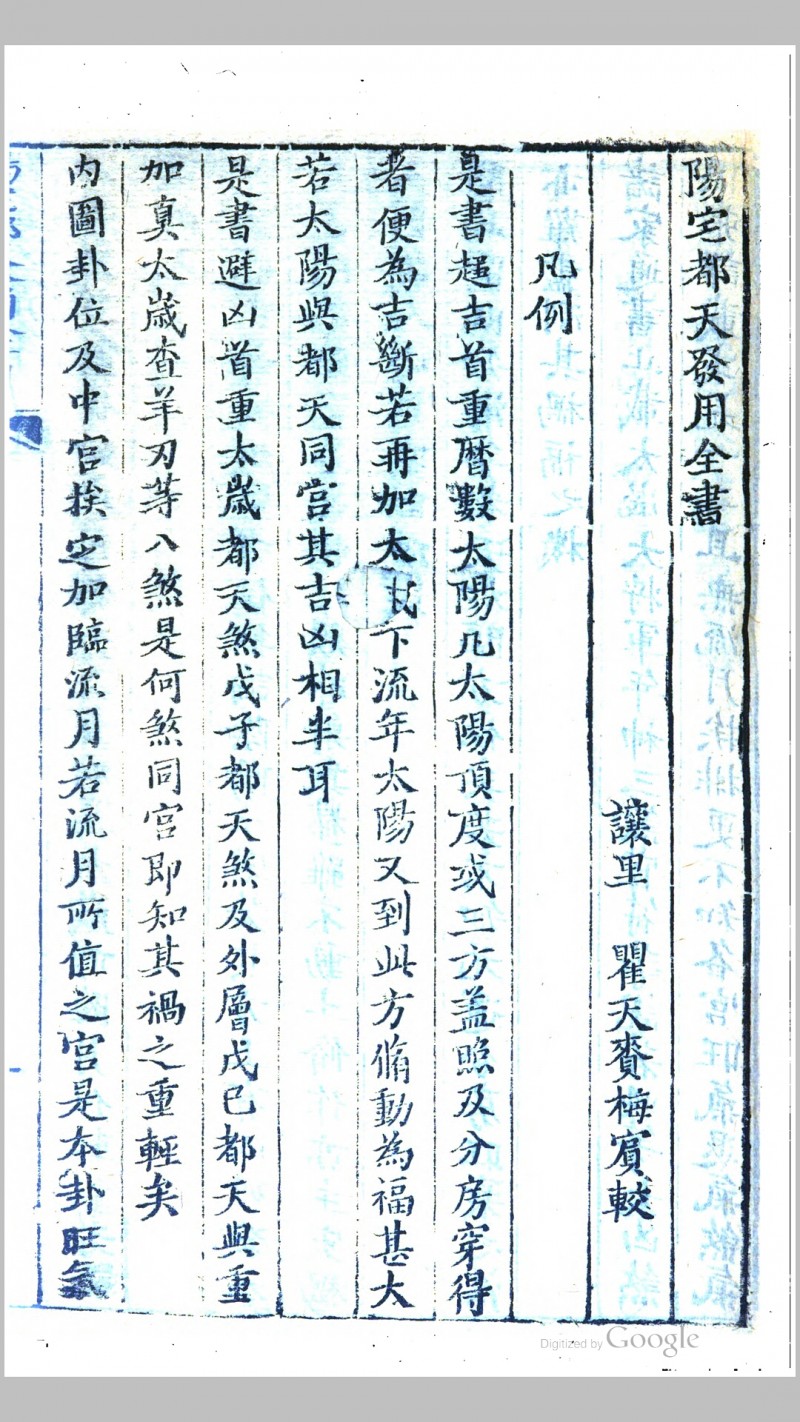 陽宅都天發用全書
讓里　瞿天賚梅賔較
凡例
是書趨吉首重曆數太陽凡太陽頂度或三方盖照及分房穿得
者便為吉斷若再加太下流年太陽又到此方脩動為福甚大
若太陽與都天同宮其吉凶相半耳
是書避凶首重太歲都天煞戊子都天煞及外層戊巳都天與重
加真太歲查羊刃等八煞是何煞同宮即知其禍之重輕矣
内圖卦位及中宮挨定加臨流月若流月所值之宮是本卦旺氣
Digitized by Google